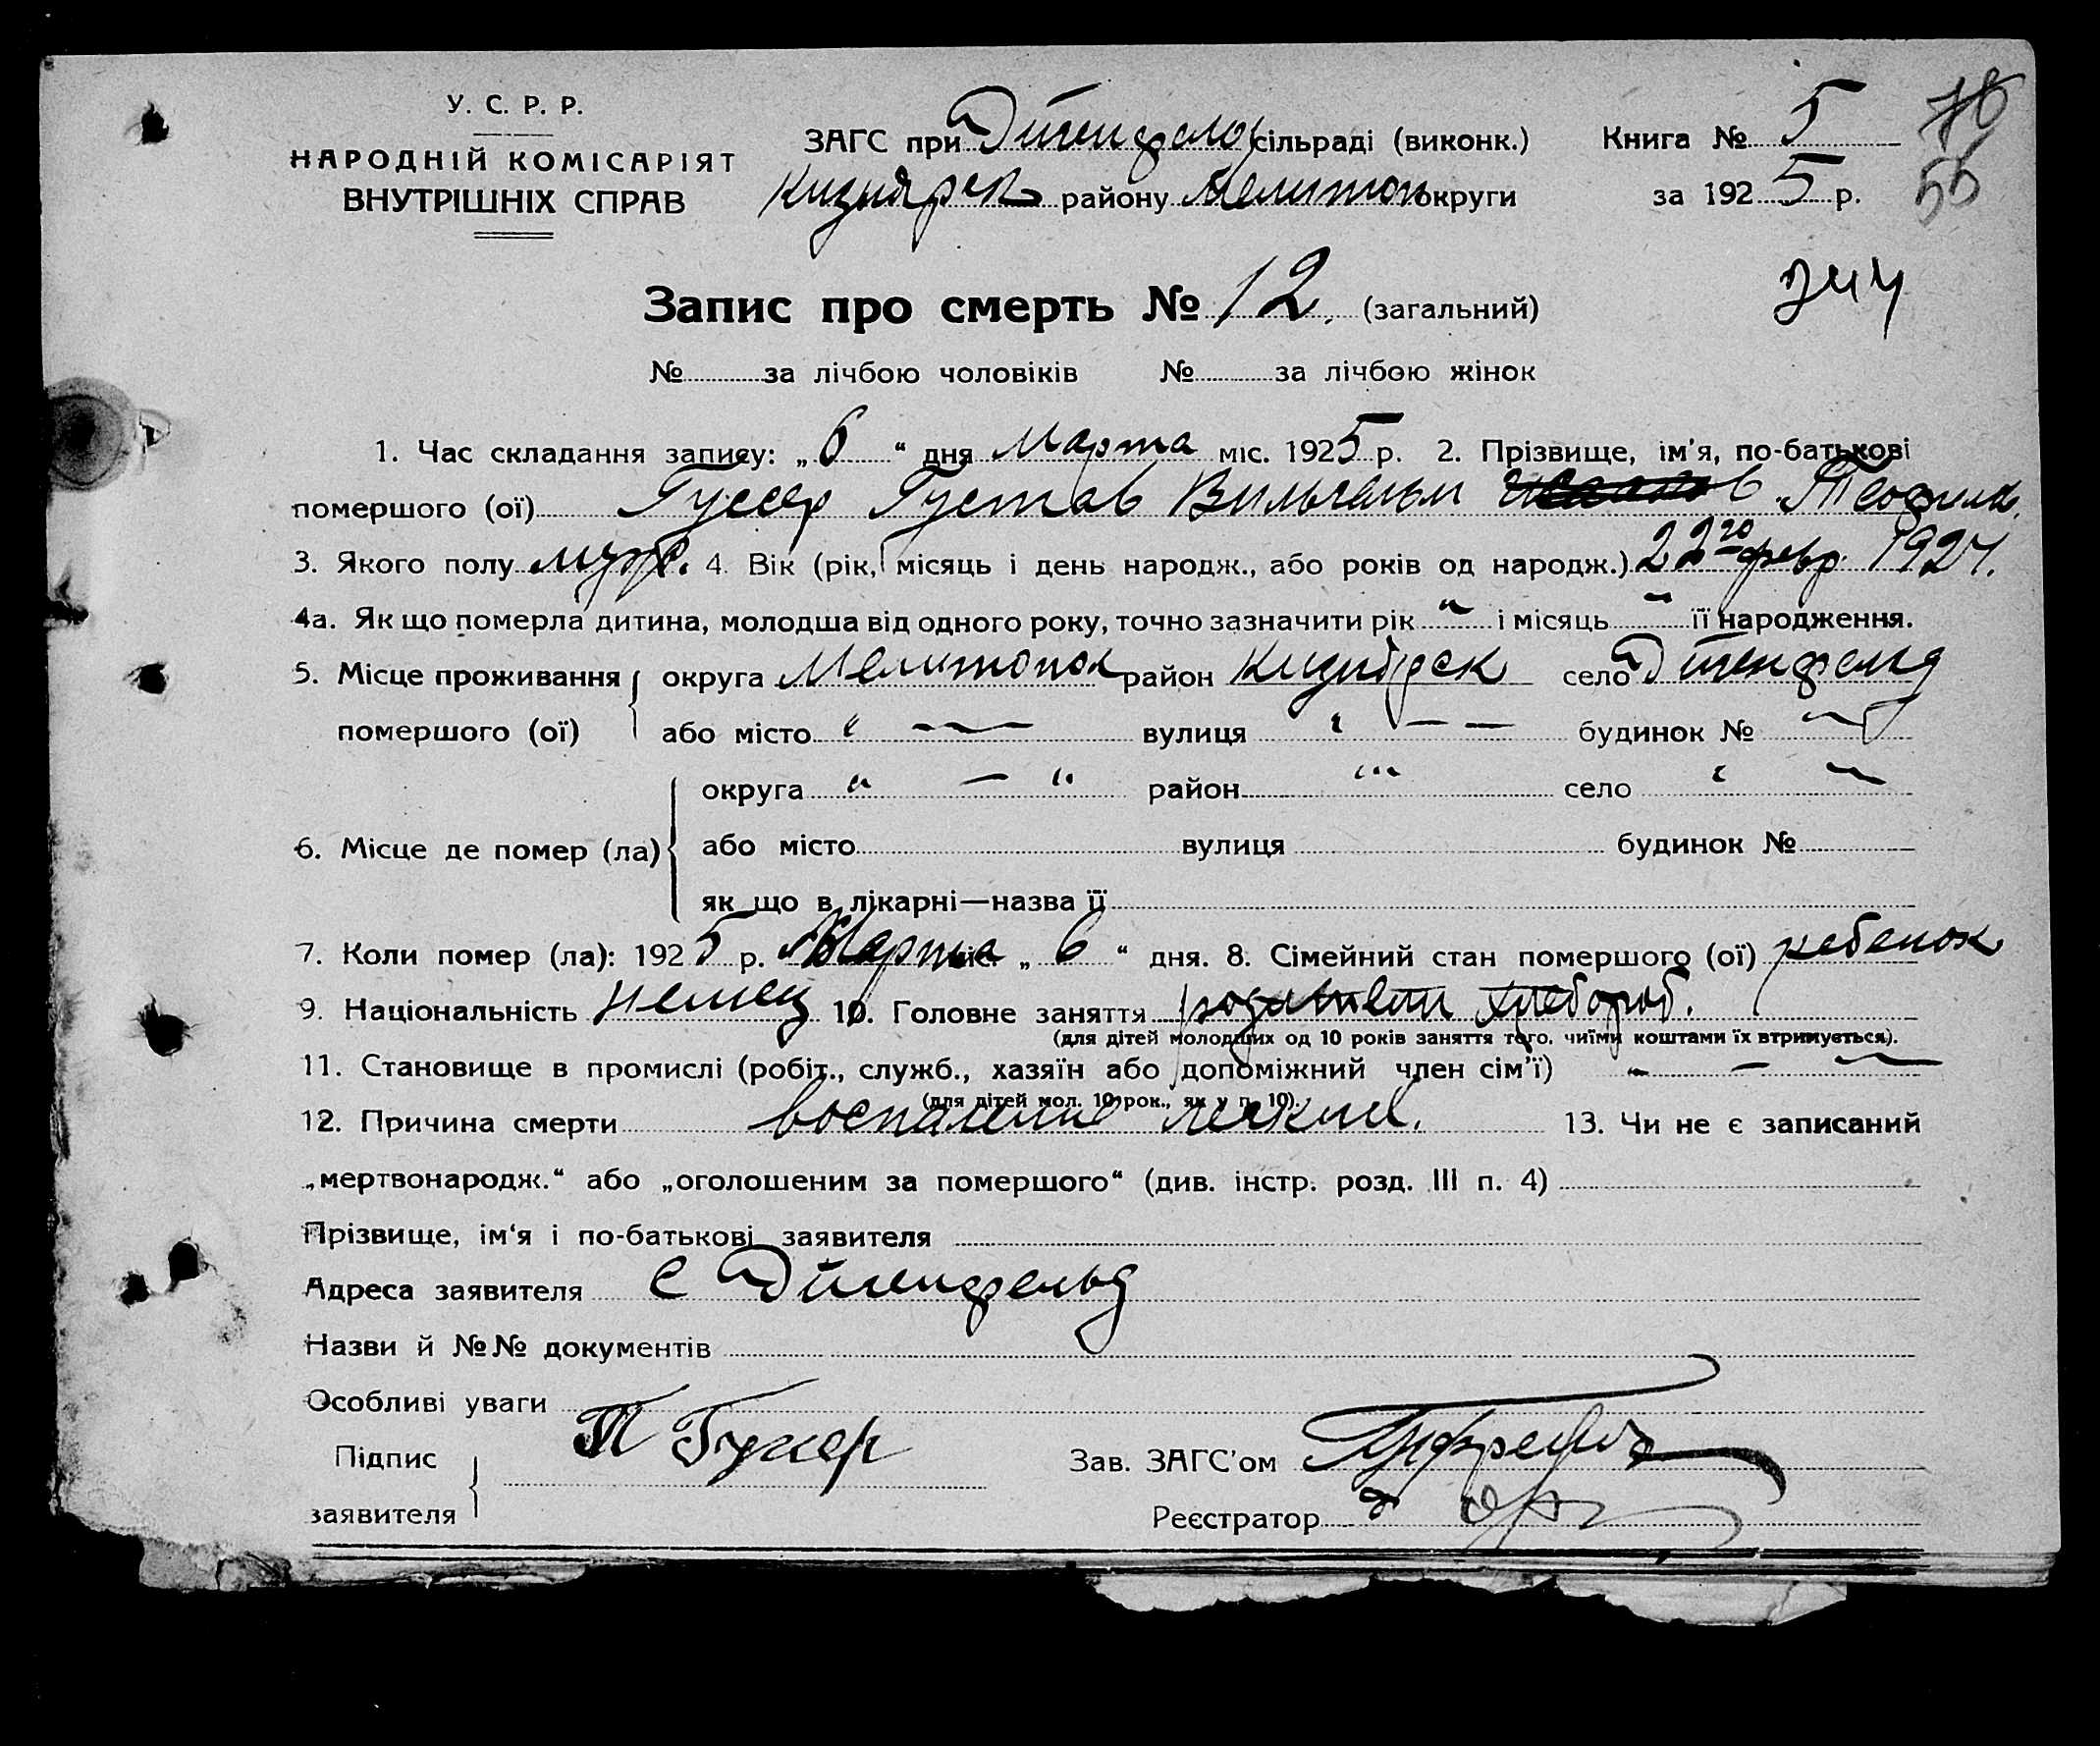 У. С. Р. Р.
НАРОДНІЙ КОМІСАРІЯТ
ВНУТРІШНІХ СПРАВ
ЗАГС при сільраді (виконк.)
району Мелитоп округи
Книга № 5
за 1925 р.
55
Запис про смерть № 12. (загальний)
№ за лічбою чоловіків № за лічбою жінок
1. Час складання запису: „6“ дня Марта міс. 1925 р. 2. Прізвище, ім'я, по-батькові
помершого (ої) Густав Вильгельм
3. Якого полу муж. 4. Вік (рік, місяць і день народж., або років од народж.) 22го февр. 1924.
4а. Як що померла дитина, молодша від одного року, точно зазначити рік „ і місяць „ її народження.
5. Місце проживання округа Мелитопол район село
помершого (ої) або місто вулиця будинок №
округа „ — „ район село
6. Місце де помер (ла) або місто вулиця будинок №
як що в лікарні—назва її
7. Коли помер (ла): 1925 р. Марта міс. „ 6 “ дня. 8. Сімейний стан помершого (ої) ребенок
9. Національність немец 10. Головне заняття хлебороб.
(для дітей молодших од 10 років заняття того, чиїми коштами їх втримується).
11. Становище в промислі (робіт., служб., хазяїн або допоміжний член сім'ї) — —
(для дітей мол. 10 рок., як у п. 10).
12. Причина смерти воспаление легких. 13. Чи не є записаний
„мертвонародж.“ або „оголошеним за помершого“ (див. інстр. розд. III п. 4)
Прізвище, ім'я і по-батькові заявителя
Адреса заявителя с
Назви й №№ документів
Особливі уваги
Підпис
заявителя
Зав. ЗАГС'ом
Реєстратор